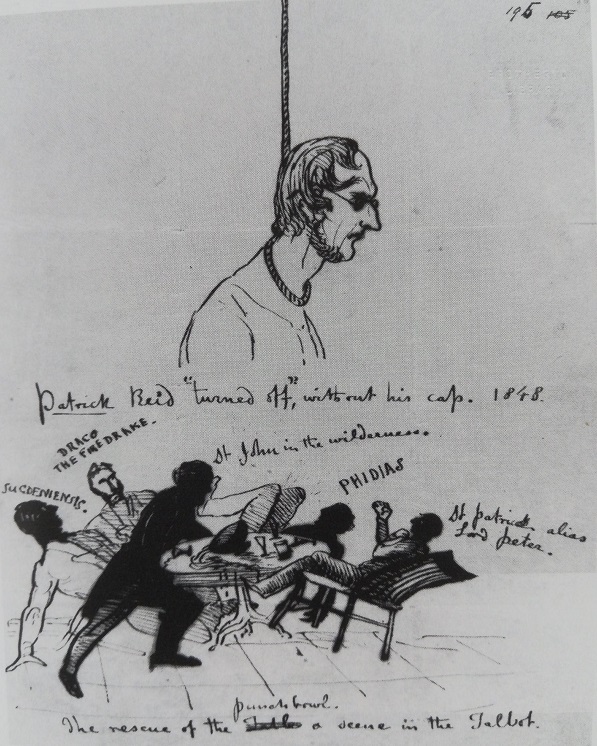 195 105
Patrick Reid "turned off", without his cap. 1848.
DRACO
THE FIREDRAKE.
St John in the wilderness.
SUGDENIENSIS.
PHIDIAS
St Patrick alias
Lord Peter.
punchbowl.
The rescue of the Table a scene in the Talbot.